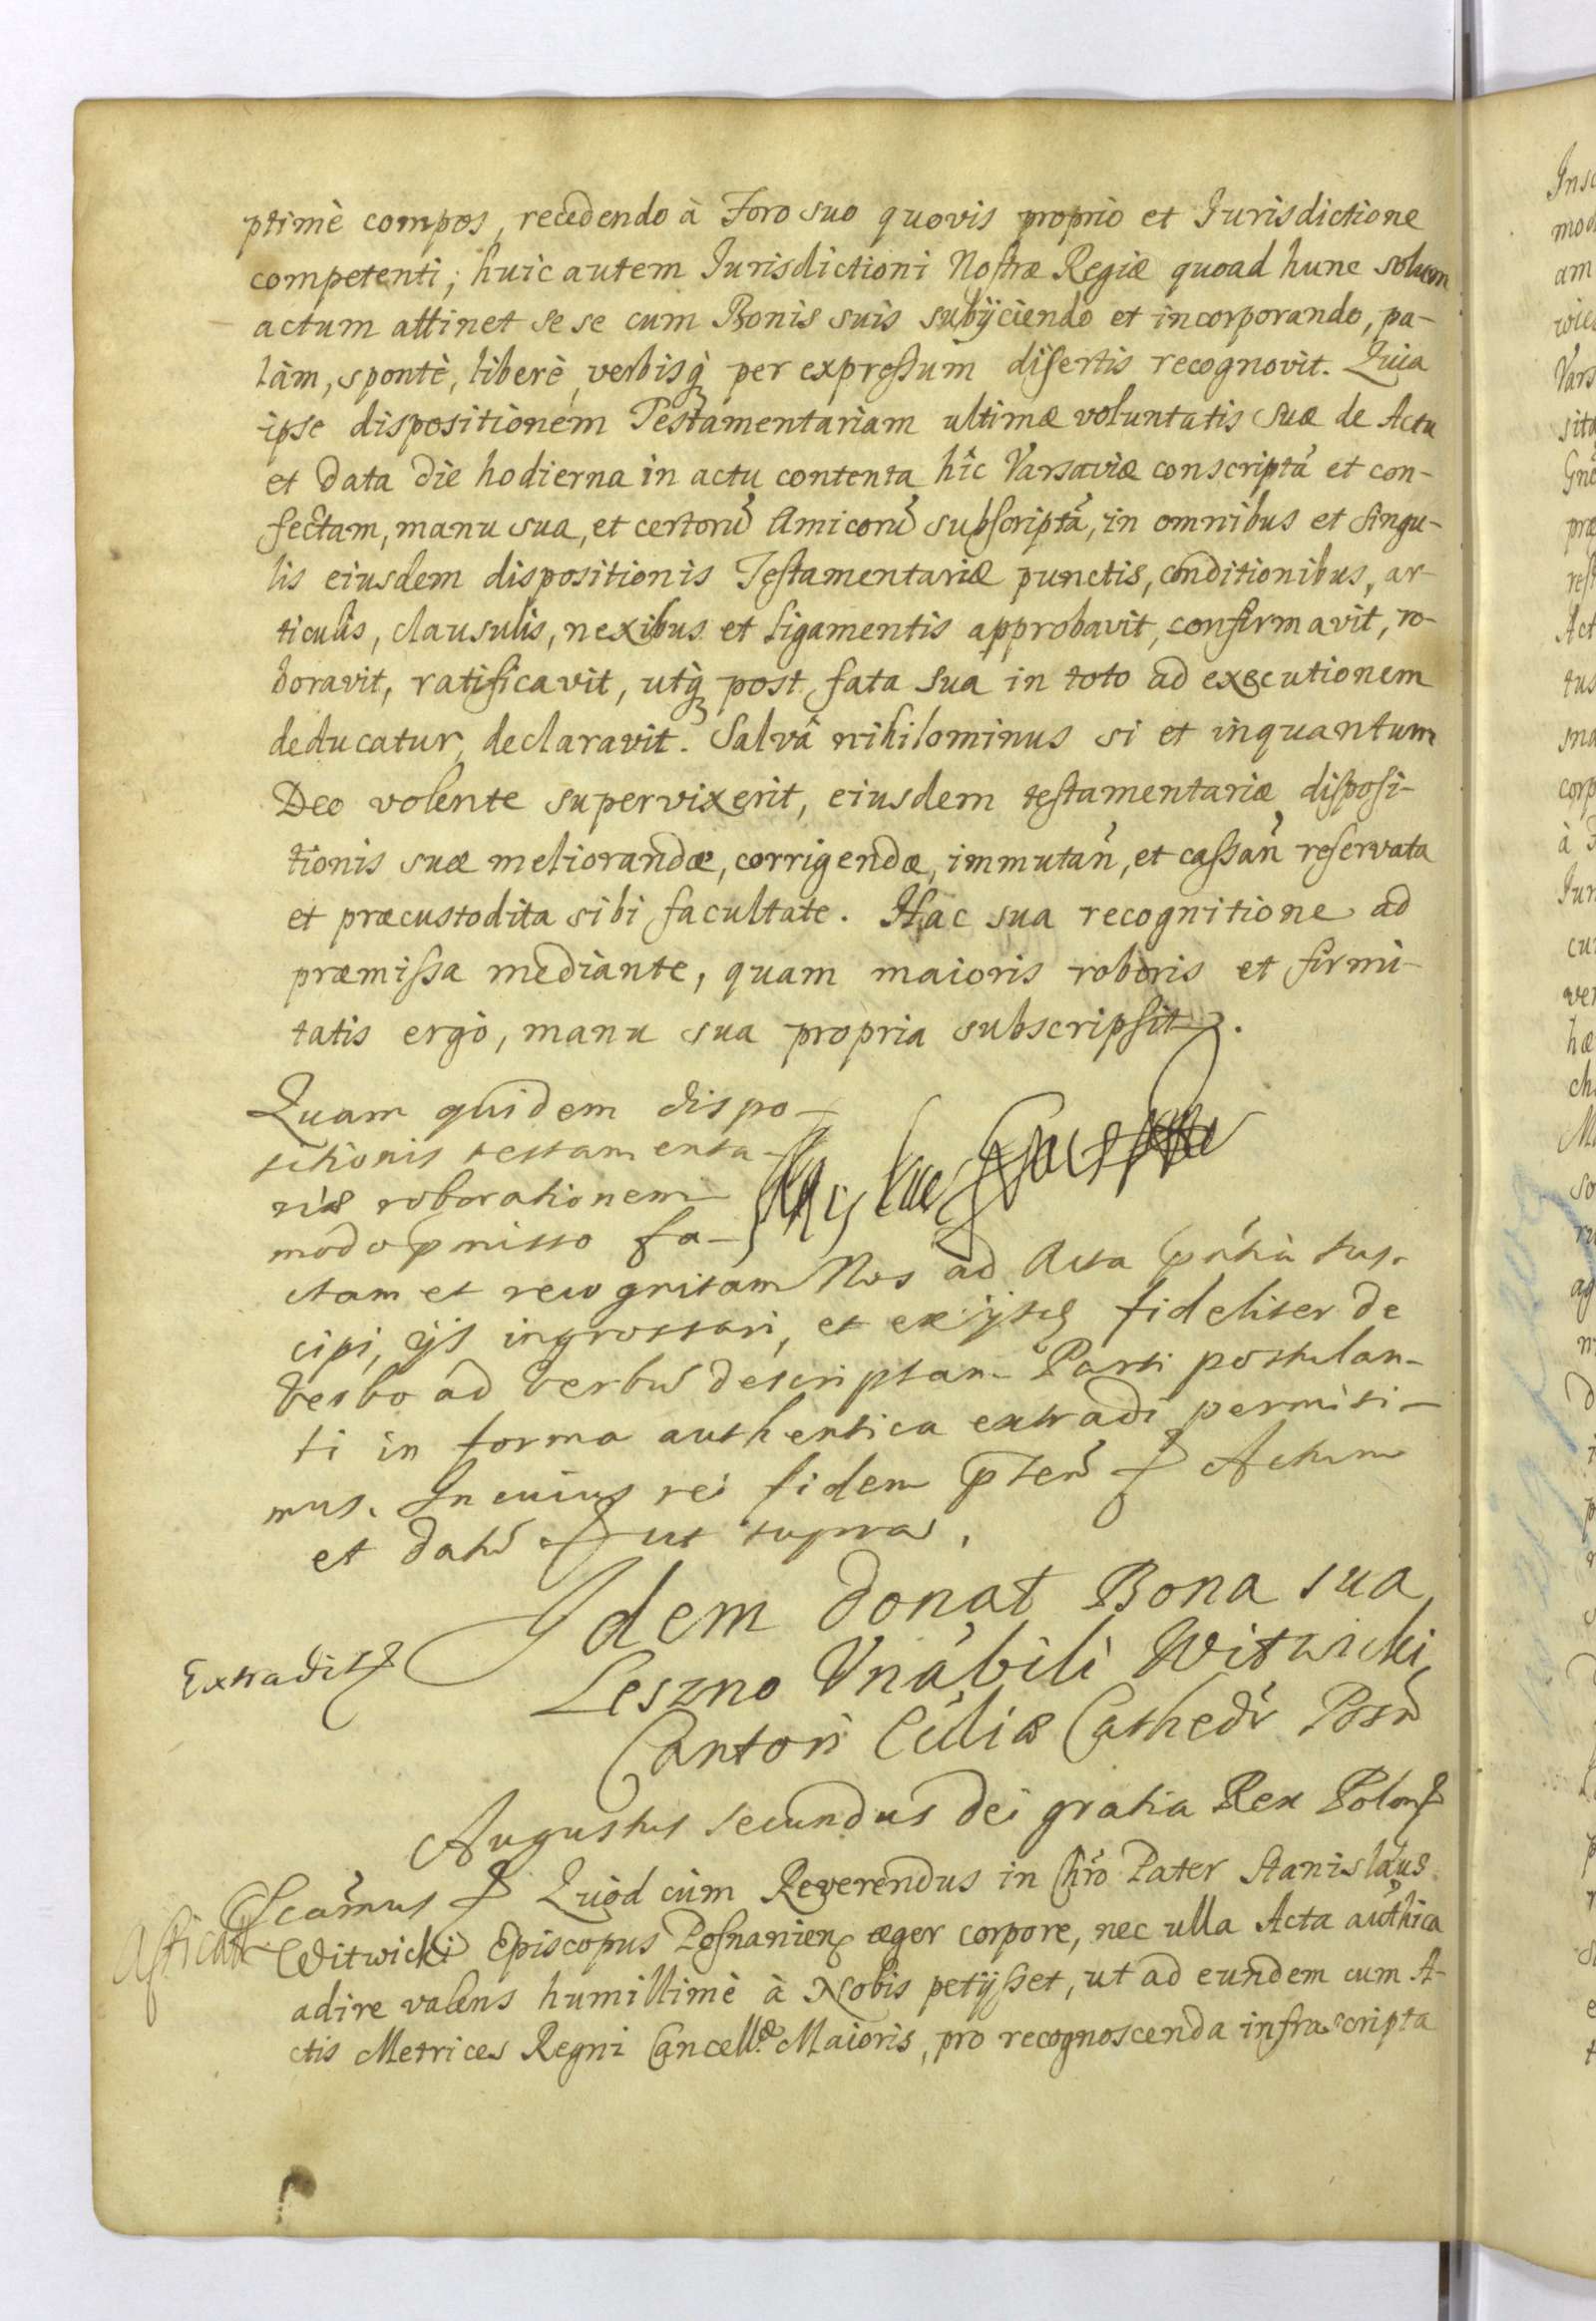 ptimè compos, recedendo à Foro suo quovis proprio et Iurisdictione
competenti; huic autem Iurisdictioni Nostræ Regiæ quoad hunc solum
actum attinet se se cum Bonis suis subijciendo et incorporando, pa-
làm, spontè, liberè, verbisq́ per expressum disertis recognovit. Quia
ipse dispositionem Testamentariam ultimæ voluntatis suæ de Actu
et Data die hodierna in actu contenta hîc Varsaviæ conscriptã et con-
fectam, manu sua, et certorũ Amicorũ subscriptã, in omnibus et singu-
lis eiusdem dispositionis Testamentariæ punctis, conditionibus, ar-
ticulis, clausulis, nexibus et ligamentis approbavit, confirmavit, ro-
boravit, ratificavit, utq́ post fata sua in toto ad executionem
deducatur, declaravit. Salvâ nihilominus si et inquantum
Deo volente supervixerit, eiusdem testamentariæ disposi-
tionis suæ meliorandæ, corrigendæ, immutañ, et cassañ reservata
et præcustodita sibi facultate. Hac sua recognitione ad
præmissa mediante, quam maioris roboris et firmi-
tatis ergò, manu sua propria subscripsit.
Quam quidem dispo-
sitionis testamenta-
riæ roborationem
modo pmisso fa-
ctam et recognitam Nos ad Acta pñtia sus-
cipi, ijs ingrossari, et ex ijsdẽ fideliter de
verbo ad verbũ descriptam Parti postulan-
ti in forma authentica extradi permisi-
mus. In cuius rei fidem pñteñ Actum
et datũ ut supra.
Idem donat Bona sua
Leszno Vnãbili Witwicki,
Cantori Ecĉliæ Cathedr̃ Posñ
Extradit
Augustus secundus Dei gratia Rex Polon
Significamus Quòd cùm Reverendus in Chrõ Pater Stanislaus
Witwicki Episcopus Posnanien æger corpore, nec ulla Acta authica
adire valens humillimè à Nobis petijsset, ut ad eundem cum A-
ctis Metrices Regni Cancellæ Maioris, pro recognoscenda infrascripta